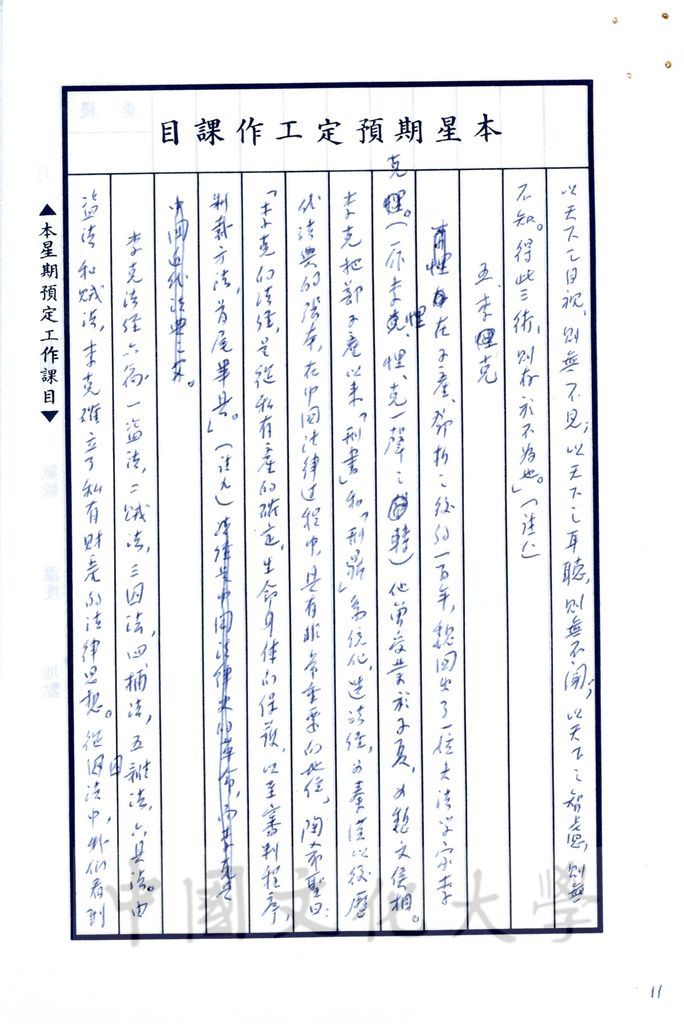 本星期預定工作課目
以天下之目視，則無不見；以天下之耳聽，則無不聞；以天下之智慮，則無
不知。得此三術，則存於不為也。」（註八）
五、李悝克
在子產、鄧析之後約一百年，魏國出了一位大法學家李
克悝。（一作李克、悝，悝、克一聲之轉）他曾受業於子夏，为魏文侯相。
李克把鄭子產以来「刑書」和「刑鼎」系統化，造法經，为秦漢以後歷
代法典的張本，在中國法律过程中，具有非常重要的地位。陶希聖曰：
「李克的法經，是從私有產的確定，生命身体的保護，以至審判程序，
制裁方法，首尾畢具。」（註九）法經是中國法律史的革命，而李克是
中國近代法典之父。
李克法經六篇：一盜法，二賊法，三囚法，四捕法，五雜法，六具法。由
盜法和賊法，李克確立了私有財產的法律思想。從囚法中，我们看到
▲本星期預定工作課目▼
中國文化大學
11